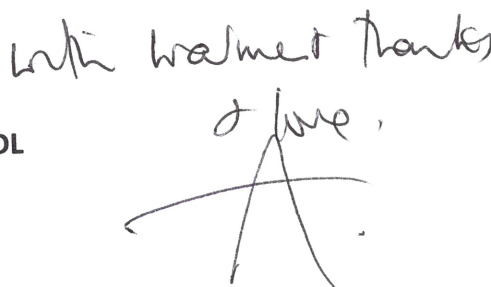 with warmest thanks
& love.
OL
A.